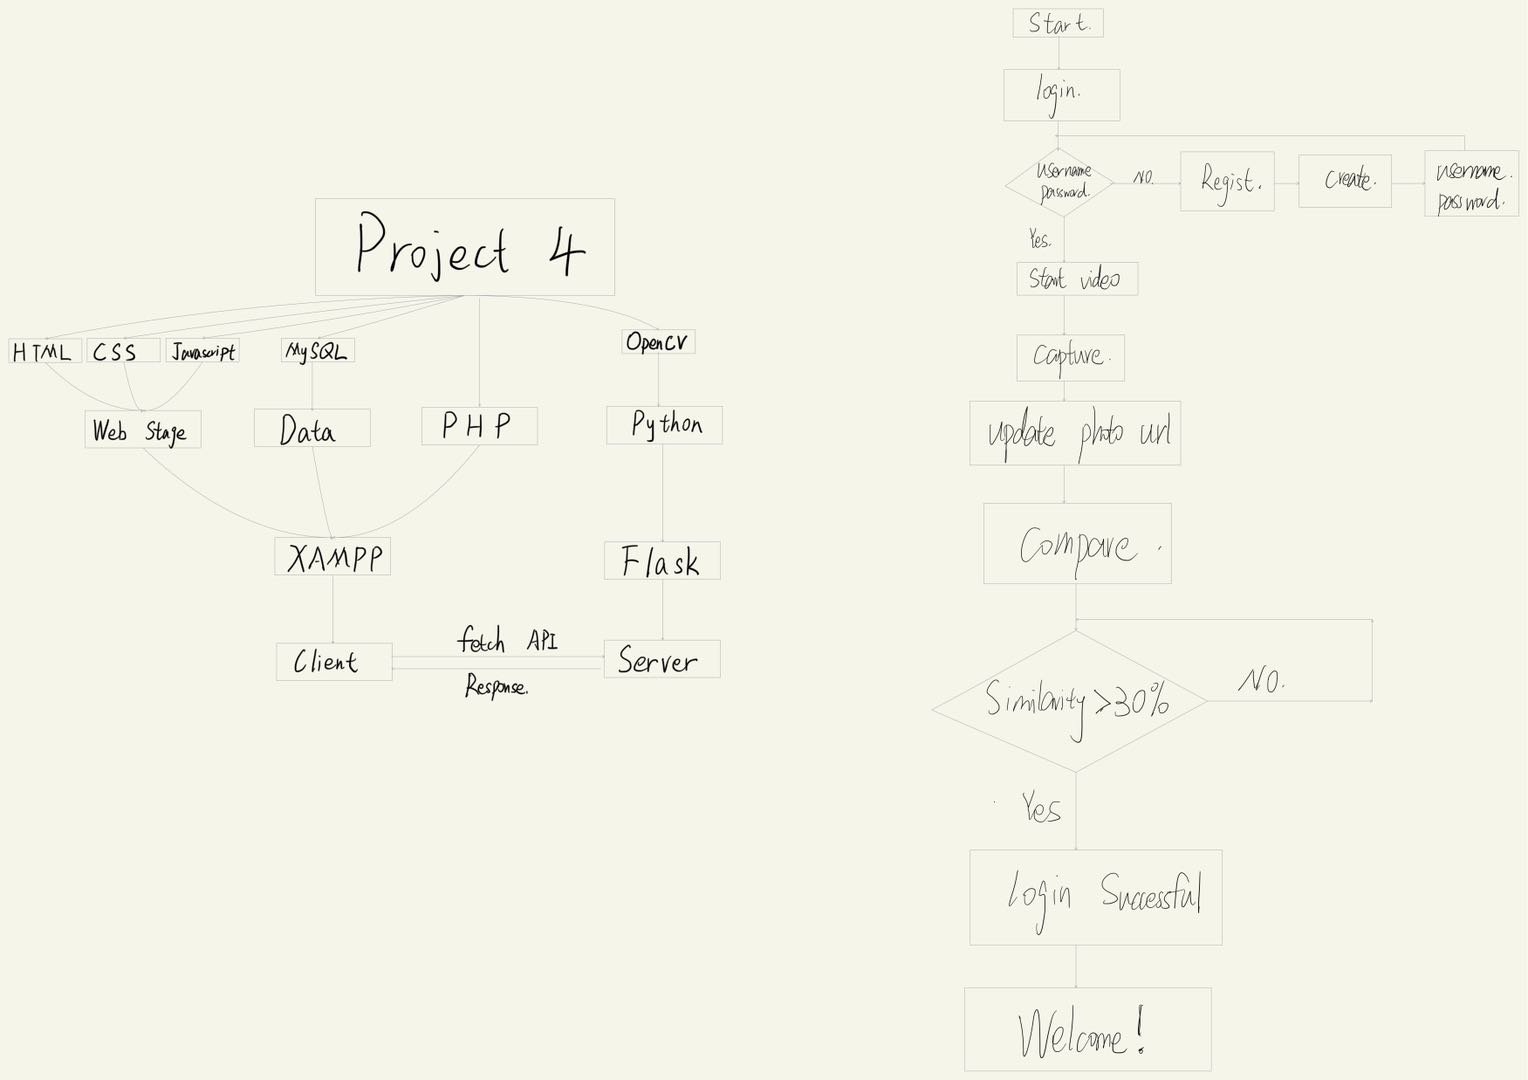 Project 4
HTML
CSS
Javascript
MySQL
OpenCV
Web Stage
Data
PHP
Python
XAMPP
Flask
Client
fetch API
Response.
Server
Start.
login.
username
password.
NO.
Regist.
Create.
username.
password.
Yes.
Start video
Capture.
update photo url
Compare.
Similarity >30%
NO.
Yes
Login Successful
Welcome!